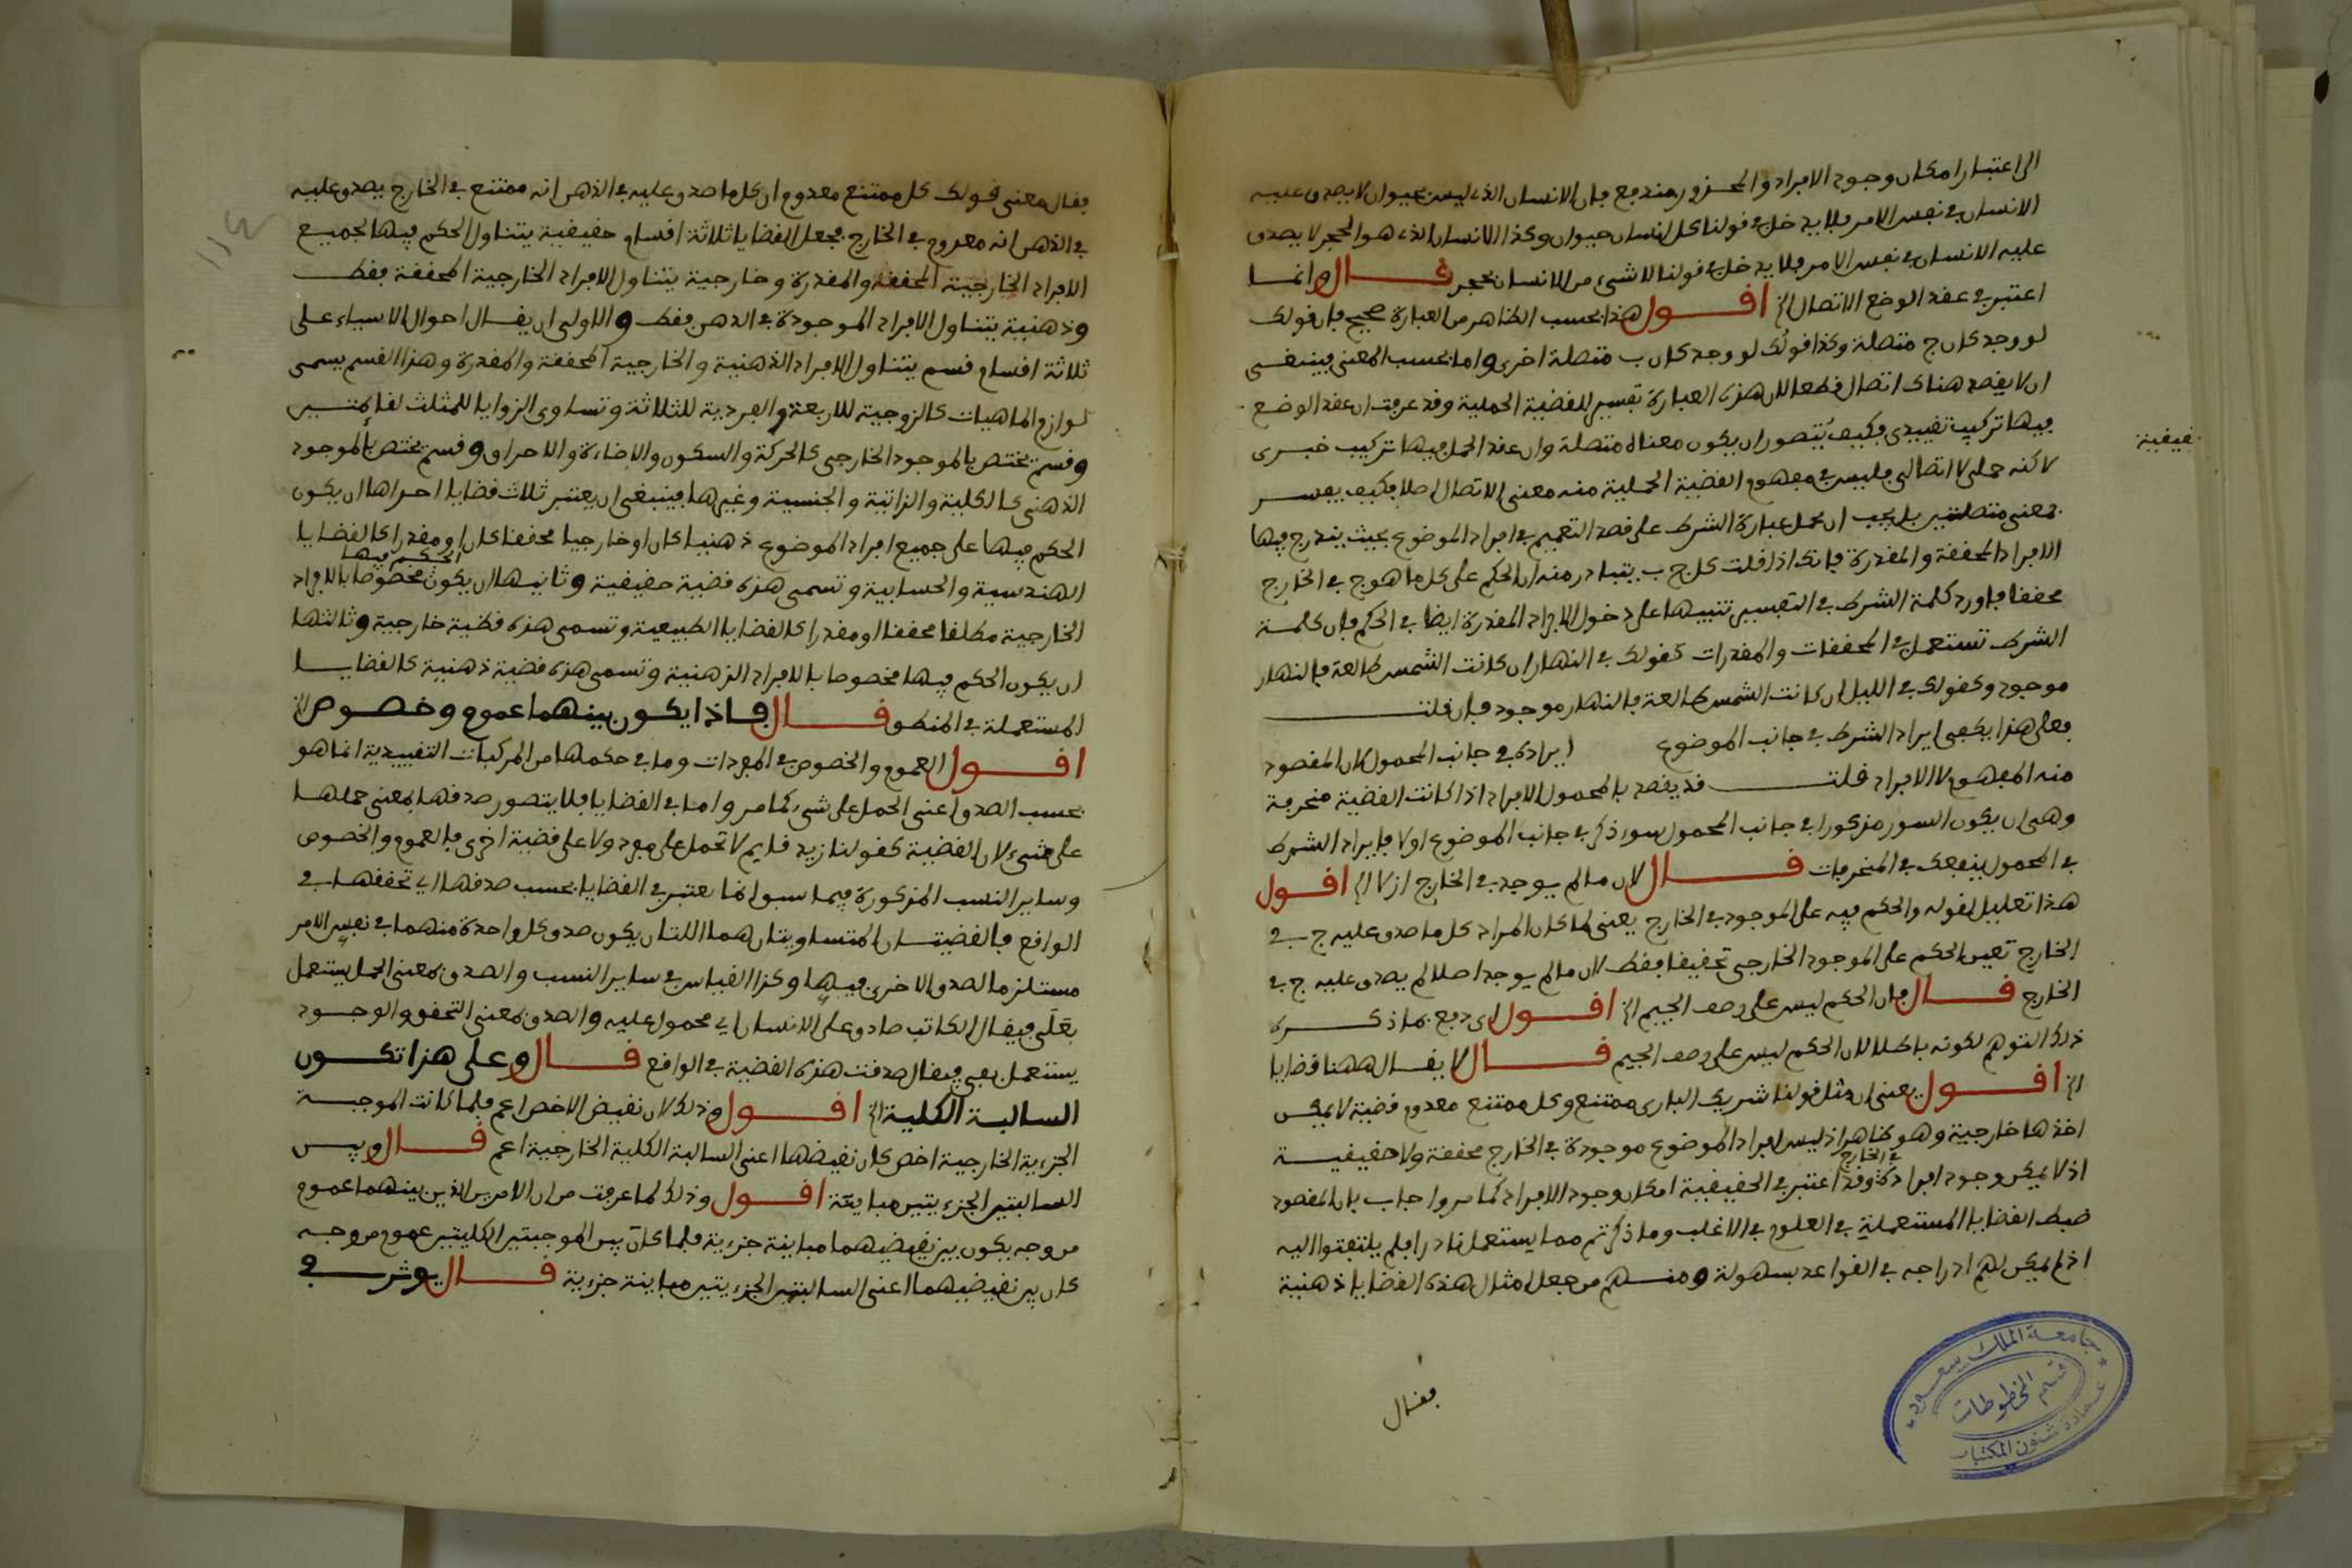 الى اعتبار امكان وجود الافراد والمحذور مندفع فان الانسان الذي ليس بحيوان لا يصدق عليه
الانسان في نفس الامر فلا يدخل في قولنا كل انسان حيوان وكذا الانسان الذي هو الحجر لا يصدق
عليه الانسان في نفس الامر فلا يدخل في قولنا لا شيء من الانسان بحجر قال وانما
اعتبر في عقد الوضع الاتصال الخ اقول هذا بحسب الظاهر من العبارة صحيح فان قولك
لو وجد كان ج متصلة وكذا قولك لو وجد كان ب متصلة اخرى واما بحسب المعنى فينبغي
ان لا يقصد هناك اتصال قطعا لان هذه العبارة تفسير للقضية الحملية وقد عرفت ان عقد الوضع
فيها تركيب تقييدي فكيف يتصور ان يكون معناه متصلة وان عقد الحمل فيها تركيب خبري
لاكنه حملي لا اتصالي فليس في مفهوم القضية الحملية منه معنى الاتصال اصلا فكيف يفسر
بمعنى متصلتين بل يجب ان يحمل عبارة الشرط على قصد التعميم في افراد الموضوع بحيث يندرج فيها
الافراد المحققة والمقدرة فانك اذا قلت كل ج ب يتبادر منه ان الحكم على كل ما هو ج في الخارج
محققا فاورد كلمة الشرط في التفسير تنبيها على دخول الافراد المقدرة ايضا في الحكم فان كلمة
الشرط تستعمل في المحققات والمقدرات كقولك في النهار ان كانت الشمس طالعة فالنهار
موجود وكقولك في الليل ان كانت الشمس طالعة فالنهار موجود فان قلت
فعلى هذا يكفي ايراد الشرط في جانب الموضوع ايراده في جانب المحمول لان المقصود
منه المفهوم لا الافراد قلت قد يقصد بالمحمول الافراد اذا كانت القضية منحرفة
وهي ان يكون السور مذكورا في جانب المحمول سواء ذكر في جانب الموضوع اولا فايراد الشرط
في المحمول ينفعك في المنحرفات قال لان ما لم يوجد في الخارج ازلا الخ اقول
هذا تعليل لقوله والحكم فيه على الموجود في الخارج يعني لما كان المراد كل ما صدق عليه ج في
الخارج تعين الحكم على الموجود الخارجي تحقيقا فقط لان ما لم يوجد اصلا لم يصدق عليه ج في
الخارج قال فان الحكم ليس على وصف الجيم الخ اقول اي دفع بما ذكره
ذلك التوهم لكونه باطلا لان الحكم ليس على وصف الجيم قال لا يقال ههنا قضايا
الخ اقول يعني ان مثل قولنا شريك الباري ممتنع وكل ممتنع معدوم قضية لا يمكن
اخذها خارجية وهو ظاهر اذ ليس افراد الموضوع موجودة في الخارج محققة ولا حقيقية
في الخارج
اذ لا يمكن وجود افراده وقد اعتبر في الحقيقية امكان وجود الافراد كما مر واجاب بان المقصود
ضبط القضايا المستعملة في العلوم في الاغلب وما ذكرتم مما يستعمل نادرا فلم يلتفتوا اليه
اذ لم يمكن لهم ادراجه في القواعد بسهولة ومنهم من جعل امثال هذه القضايا ذهنية
فقال
جامعة الملك سعود
قسم المخطوطات
عمادة شئون المكتبات
فقال معنى قولك كل ممتنع معدوم ان كل ما صدق عليه في الذهن انه ممتنع في الخارج يصدق عليه
في الذهن انه معدوم في الخارج فجعل القضايا ثلاثة اقسام حقيقية يتناول الحكم فيها لجميع
الافراد الخارجية المحققة والمقدرة وخارجية يتناول الافراد الخارجية المحققة فقط
وذهنية يتناول الافراد الموجودة في الذهن فقط والاولى ان يقال احوال الاشياء على
ثلاثة اقسام قسم يتناول الافراد الذهنية والخارجية المحققة والمقدرة وهذا القسم يسمى
لوازم الماهيات كالزوجية للاربعة والفردية للثلاثة وتساوي الزوايا للمثلث لقائمتين
وقسم يختص بالموجود الخارجي كالحركة والسكون والاضاءة والاحراق وقسم يختص بالموجود
الذهني كالكلية والذاتية والجنسية وغيرها فينبغي ان يعتبر ثلاث قضايا احداها ان يكون
الحكم فيها على جميع افراد الموضوع ذهنيا كان او خارجيا محققا كان او مقدرا كالقضايا
الحكم فيها
الهندسية والحسابية وتسمى هذه قضية حقيقية وثانيها ان يكون مخصوصا بالافراد
الخارجية مطلقا محققا او مقدرا كالقضايا الطبيعية وتسمى هذه قضية خارجية وثالثها
ان يكون الحكم فيها مخصوصا بالافراد الذهنية وتسمى هذه قضية ذهنية كالقضايا
المستعملة في المنطق قال فاذا يكون بينهما عموم وخصوص الخ
اقول العموم والخصوص في المفردات وما في حكمها من المركبات التقييدية انما هو
بحسب الصدق اعني الحمل على شيء كما مر واما في القضايا فلا يتصور صدقها بمعنى حملها
على شيء لان القضية كقولنا زيد قايم لا تحمل على مفرد ولا على قضية اخرى فالعموم والخصوص
وساير النسب المذكورة فيما سبق انما يعتبر في القضايا بحسب صدقها اي تحققها في
الواقع فالقضيتان المتساويتان هما اللتان يكون صدق كل واحدة منهما في نفس الامر
مستلزما لصدق الاخرى فيها وكذا القياس في ساير النسب والصدق بمعنى الحمل يستعمل
بعلى فيقال الكاتب صادق على الانسان اي محمول عليه والصدق بمعنى التحقق والوجود
يستعمل بفي فيقال صدقت هذه القضية في الواقع قال وعلى هذا تكون
السالبة الكلية الخ اقول وذلك لان نقيض الاخص اعم فلما كانت الموجبة
الجزءية الخارجية اخص كان نقيضها اعني السالبة الكلية الخارجية اعم قال وبين
السالبتين الجزءيتين مباينة اقول وذلك لما عرفت من ان الامرين الذين بينهما عموم
من وجه يكون بين نقيضيهما مباينة جزءية فلما كان بين الموجبتين الكليتين عموم من وجه
كان بين نقيضيهما اعني السالبتين الجزءيتين مباينة جزءية قال يوثر في